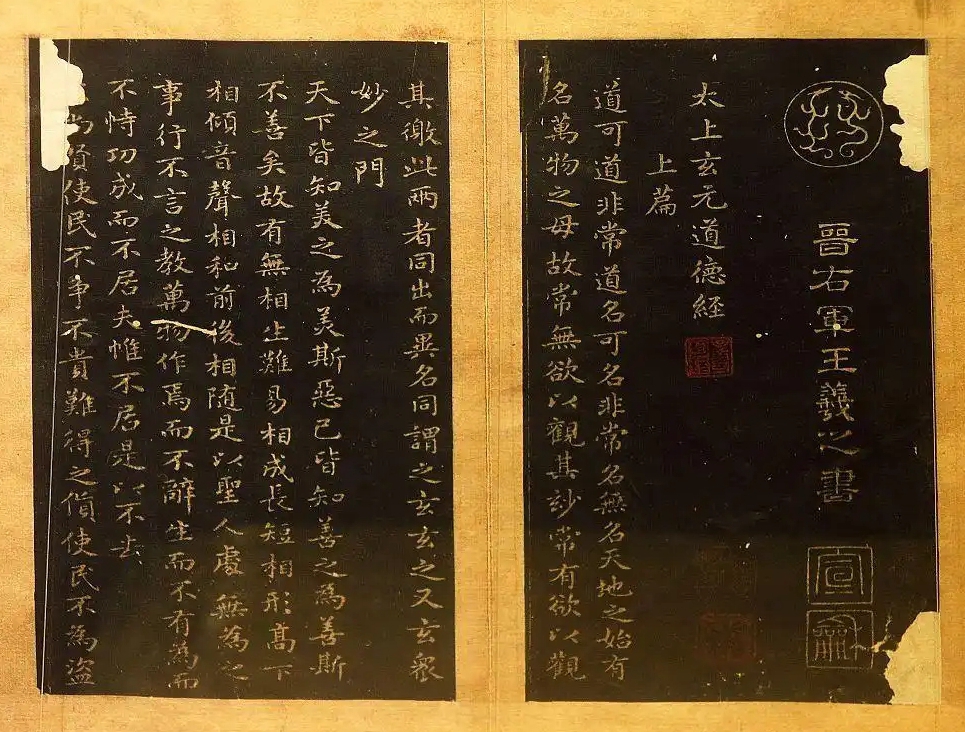 晉右軍王羲之書
宣
龢
太上玄元道德經
上篇
道可道非常道名可名非常名無名天地之始有
名萬物之母故常無欲以觀其妙常有欲以觀
其徼此兩者同出而異名同謂之玄玄之又玄衆
妙之門
天下皆知美之為美斯惡已皆知善之為善斯
不善矣故有無相生難易相成長短相形高下
相傾音聲相和前後相隨是以聖人處無為之
事行不言之教萬物作焉而不辭生而不有為而
不恃功成而不居夫惟不居是以不去
尚賢使民不爭不貴難得之貨使民不為盜